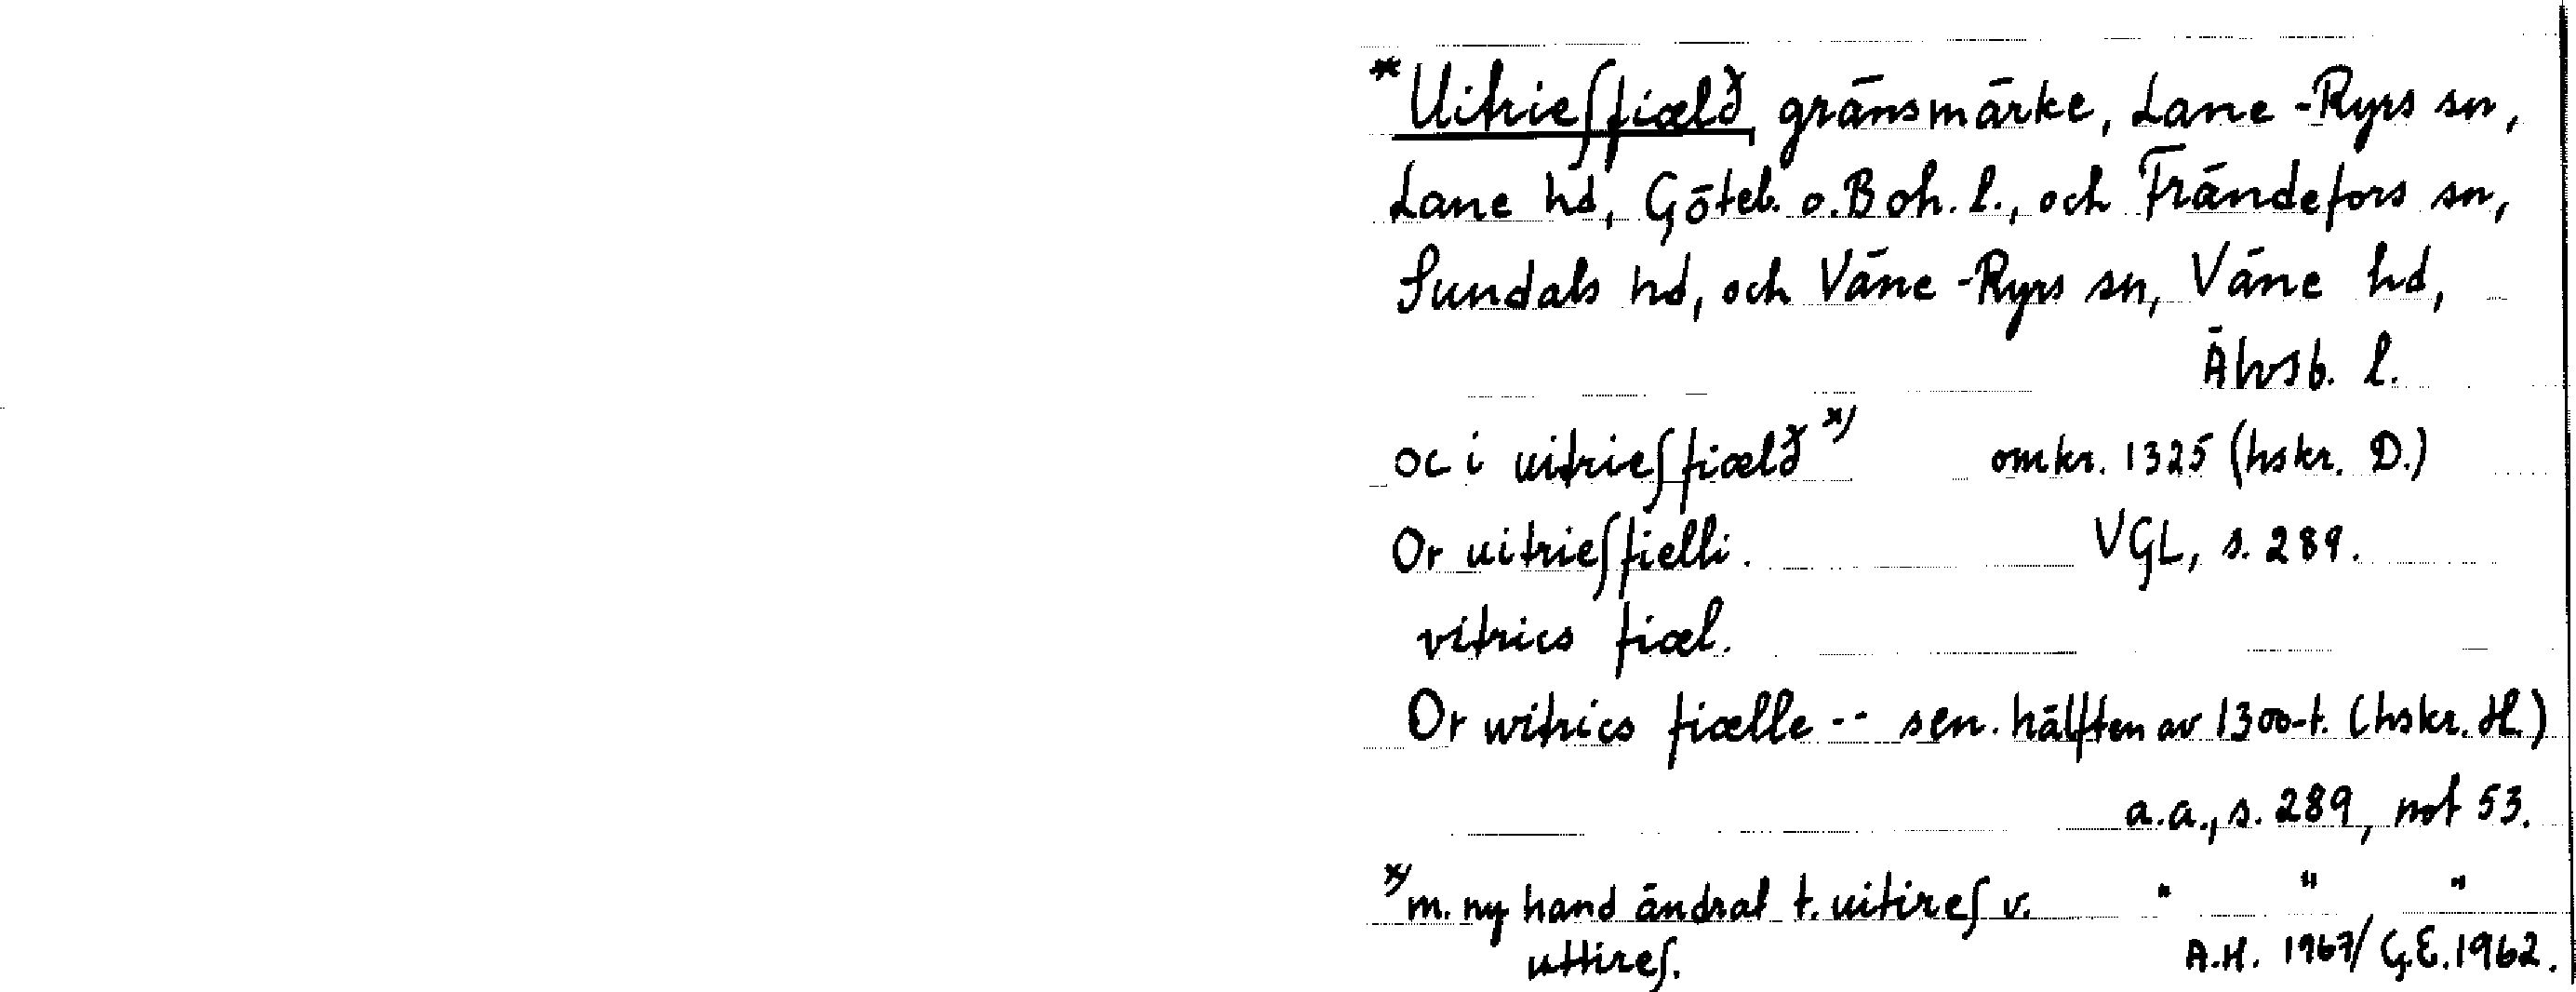 *Uitrieſfiælð, gränsmärke, Lane-Ryrs sn,
Lane hd, Göteb. o. Boh. l., och Frändefors sn,
Sundals hd, och Väne-Ryrs sn, Väne hd,
Älvsb. l.
oc i uitrieſfiælð x) omkr. 1325 (hskr. D.)
Or uitrieſfielli. VGL, s. 289.
vitrics fiæl.
Or witrics fiælle -- sen. hälften av 1300-t. (hskr. H.)
a.a., s. 289, not 53.
x) m. ny hand ändrat t. uitireſ v. " " "
uttireſ. A.H. 1967/G.E. 1962.